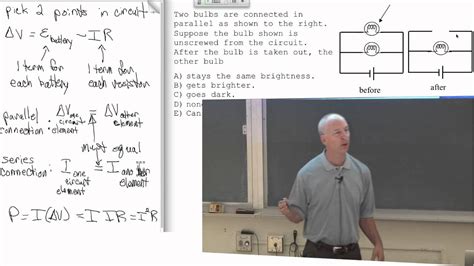 Pick 2 points in circuit
ΔV = ε battery - IR
1 term for each battery
1 term for each resistor
parallel connection: ΔV one circuit element = ΔV other element
must equal
series connection: I one circuit element = I another element
P = I(ΔV) = I IR = I²R
Two bulbs are connected in
parallel as shown to the right.
Suppose the bulb shown is
unscrewed from the circuit.
After the bulb is taken out, the
other bulb
A) stays the same brightness.
B) gets brighter.
C) goes dark.
D) non
E) Can
before
after